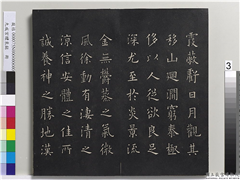 霞蔽虧日月觀其
移山迴澗窮泰極
侈以人從欲良足
深尤至於炎景流
金無鬱蒸之氣微
風徐動有淒清之
涼信安體之佳所
誠養神之勝地漢
3